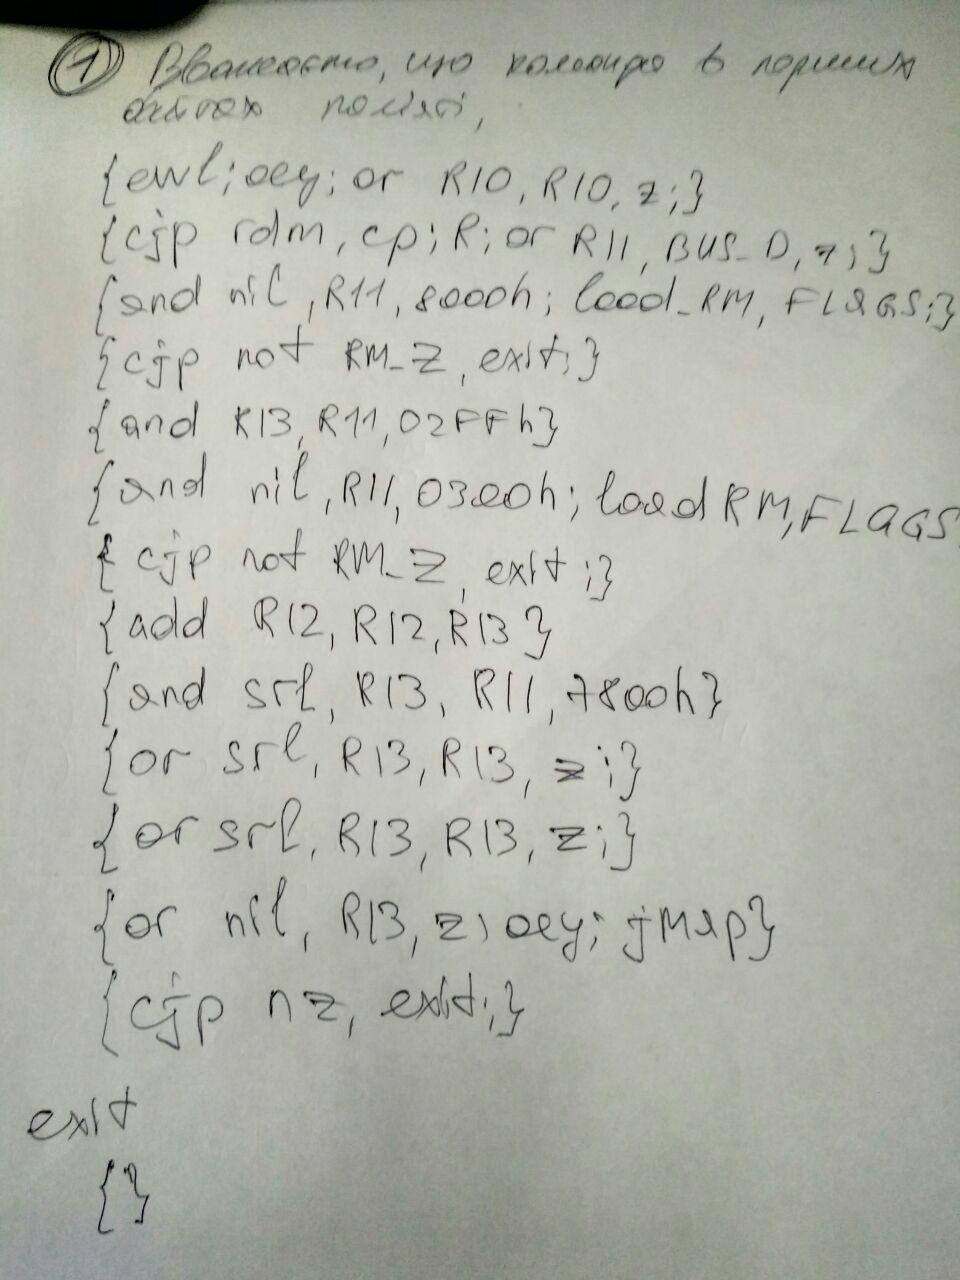 1 Вважаємо, що команда в перших
байтах пам'яті,
{ewl; oey; or R10, R10, z;}
{cjp rdm, cp; R; or R11, BUS_D, z;}
{and nil, R11, 8000h; load_RM, FLAGS;}
{cjp not RM_Z, exit;}
{and R13, R11, 02FFh}
{and nil, R11, 0300h; load RM, FLAGS
{cjp not RM_Z, exit;}
{add R12, R12, R13}
{and srl, R13, R11, 7800h}
{or srl, R13, R13, z;}
{or srl, R13, R13, z;}
{or nil, R13, z; oey; jmap}
{cjp nz, exit;}
exit
{}